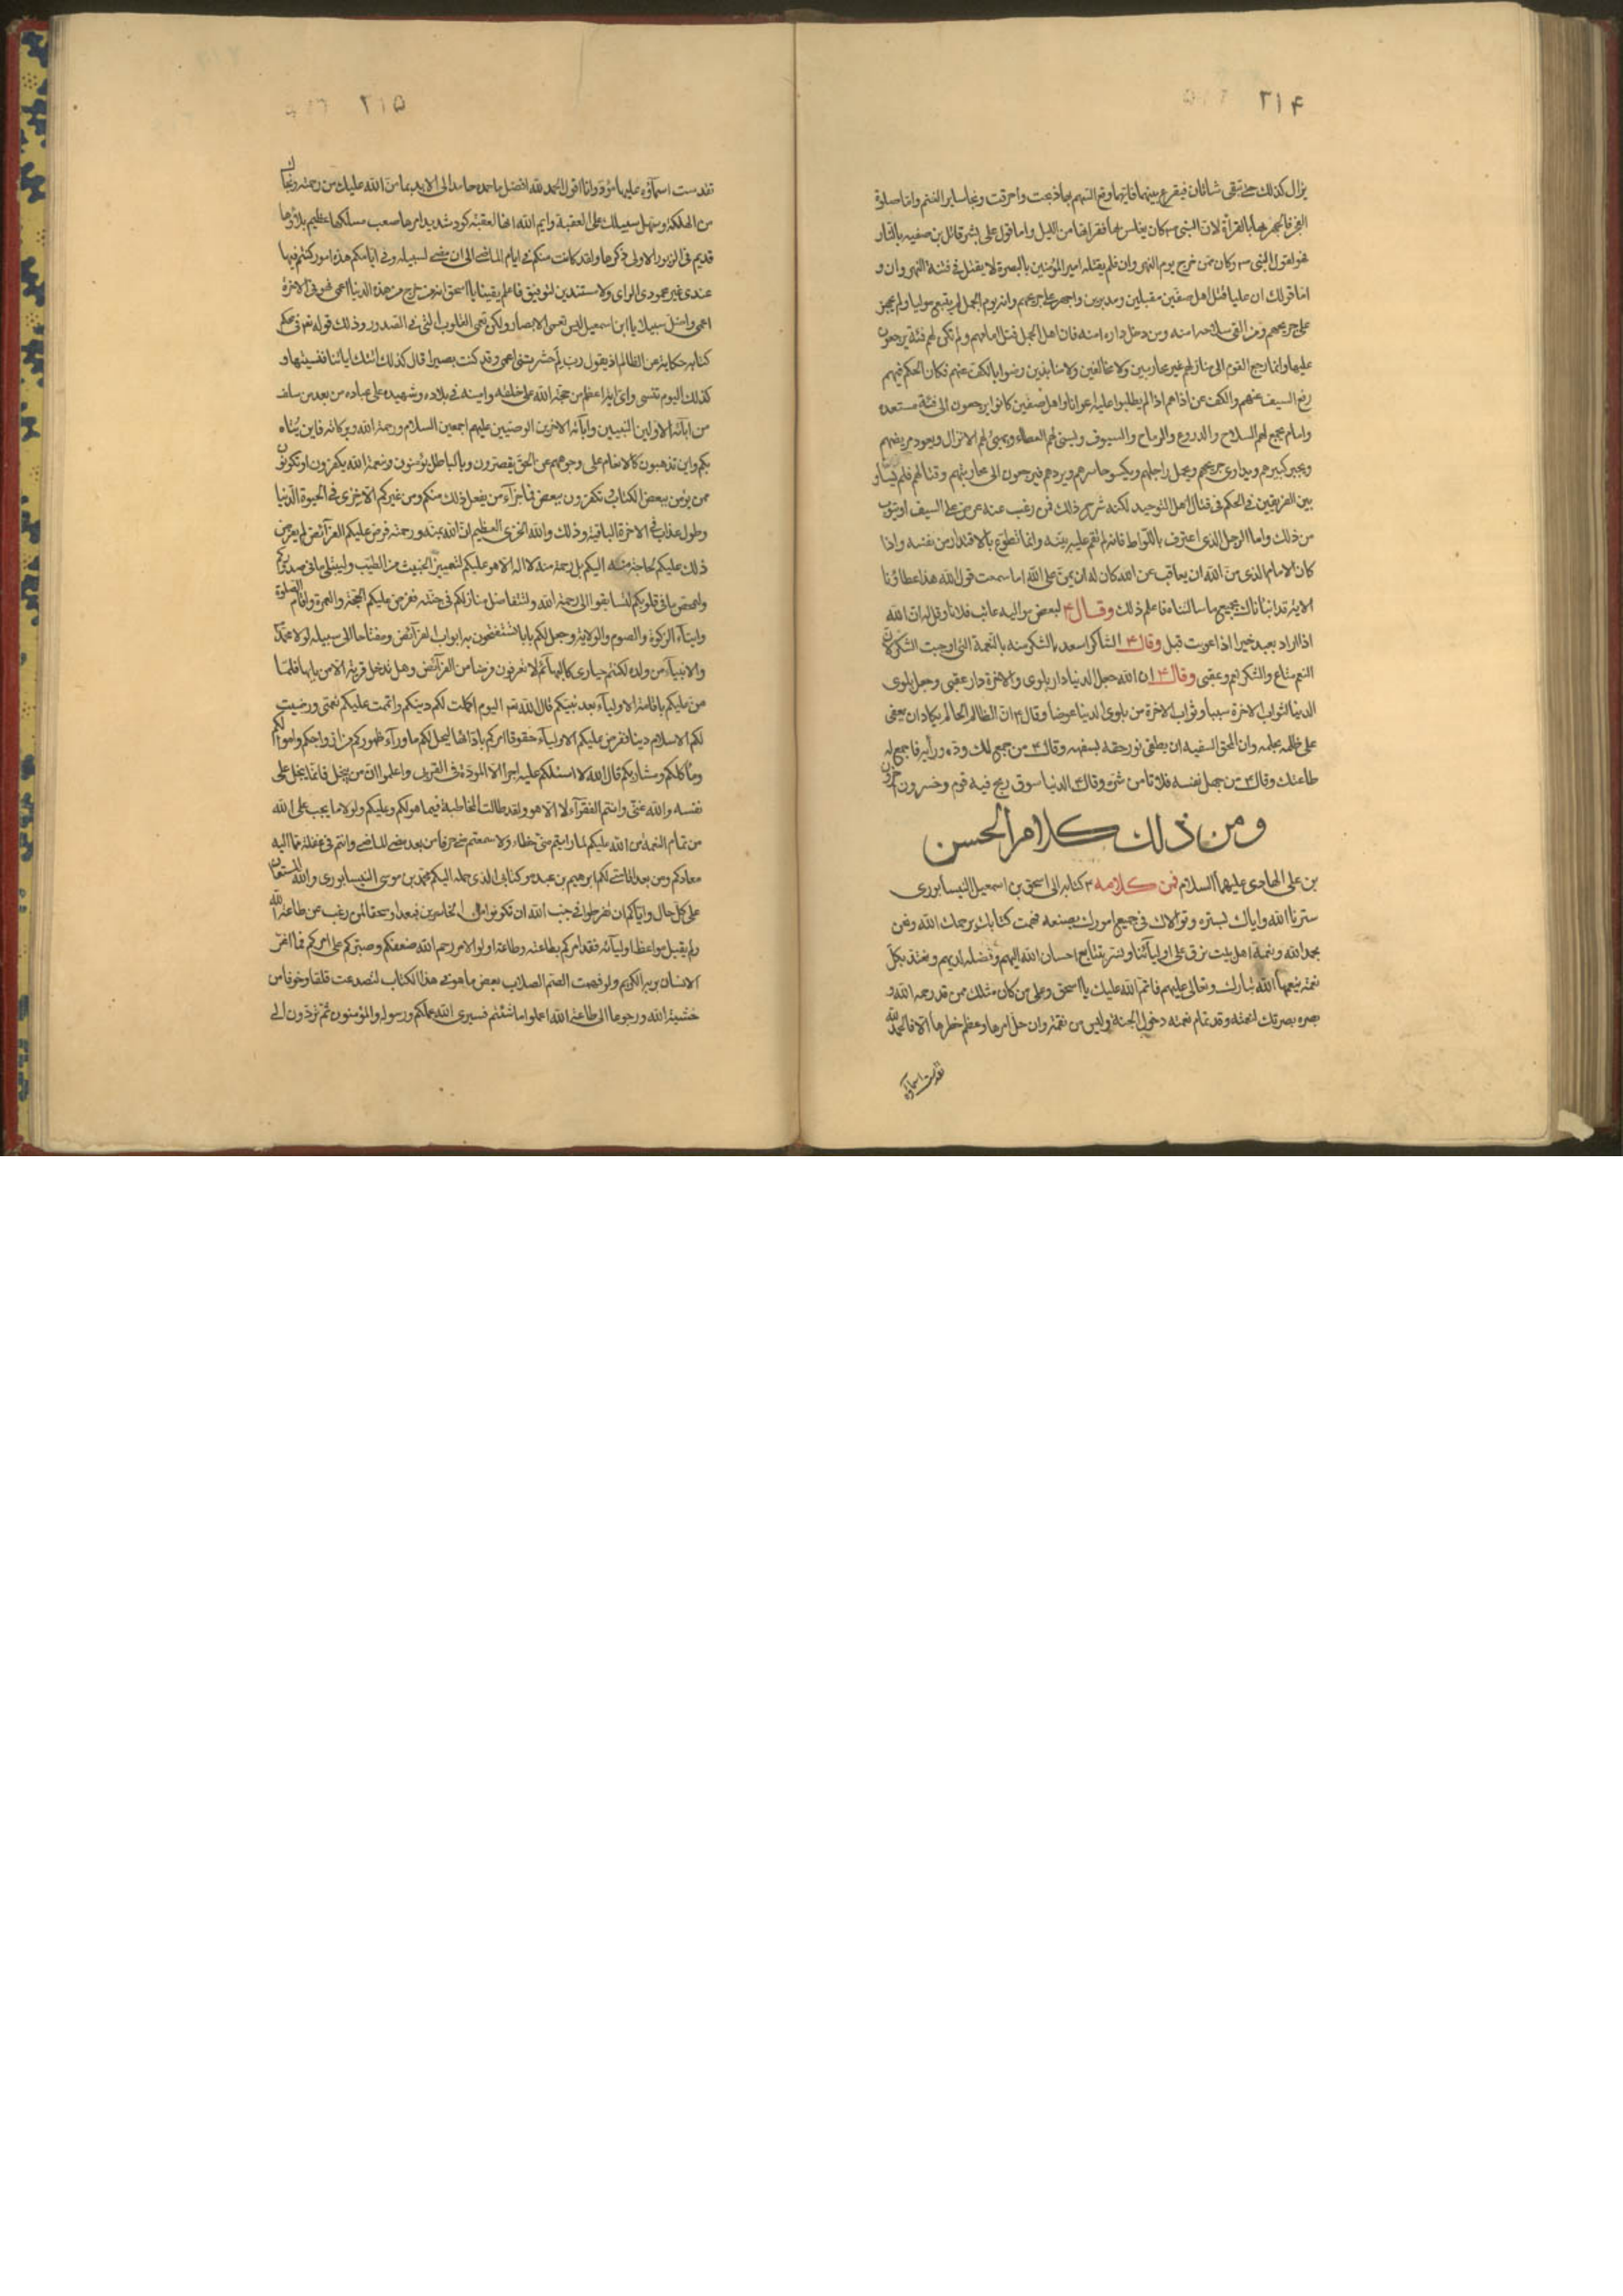 ٢١۴
يزال كذلك حتى تبقى شاتان فيقرع بينهما فايتهما وقع السهم بها ذبحت واحرقت ونجا ساير الغنم واما صلوة
الفجر فالجهر فيها بالقرأة لان النبى ص كان يغلس بها فقرائتها من الليل واما قول على بشر قاتل بن صفيه بالنار
فهو لقول النبى ص وكان ممن خرج يوم النهروان فلم يقتله امير المؤمنين بالبصرة لانه يقتل فى فتنة النهروان و
اما قولك ان عليا قتل اهل صفين مقبلين ومدبرين واجهز على جريحهم وانه يوم الجمل لم يتبع موليا ولم يجهز
على جريحهم ومن القى سلاحه امنه ومن دخل داره امنه فان اهل الجمل قتل امامهم ولم تكن لهم فئة يرجعون
عليها وانما رجع القوم الى منازلهم غير محاربين ولا مخالفين ولا منابذين رضوا بالكف عنهم فكان الحكم فيهم
رفع السيف عنهم والكف عن اذاهم اذ لم يطلبوا عليه اعوانا واهل صفين كانوا يرجعون الى فئة مستعدة
وامام يجمع لهم السلاح والدروع والرماح والسيوف ويسنى لهم العطاء ويهيئ لهم الانزال ويعود مريضهم
ويجبر كسيرهم ويداوى جريحهم ويحمل راجلهم ويكسو حاسرهم ويردهم فيرجعون الى محاربتهم وقتالهم فلم يساو
بين الفريقين فى الحكم فى قتال اهل التوحيد لكنه شرح ذلك فمن رغب عنه عرض على السيف او يتوب
من ذلك واما الرجل الذى اعترف باللواط فانه لم تقم عليه بينة وانما تطوع بالاقتدار من نفسه واذا
كان الامام الذى من الله ان يعاقب عن الله كان له ان يمن على الله اما سمعت قول الله هذا عطاؤنا
الاية قد انبأناك بجميع ما سالتناه فاعلم ذلك وقال ع لبعض مواليه عاتب فلانا وقل له ان الله
اذا اراد بعبد خيرا اذا عوتب قبل وقال ع الشاكر اسعد بالشكر منه بالنعمة التى اوجبت الشكر لان
النعم متاع والشكر نعم وعقبى وقال ع ان الله جعل الدنيا دار بلوى والاخرة دار عقبى وجعل بلوى
الدنيا لثواب الاخرة سببا وثواب الاخرة من بلوى الدنيا عوضا وقال ع ان الظالم الحالم يكاد ان يعفى
على ظلمه بحلمه وان المحق السفيه ان يطفى نور حقه بسفهه وقال ع من جمع لك وده ورأيه فاجمع له
طاعتك وقال ع من جهل نفسه فلا تامن شره وقال ع الدنيا سوق ربح فيه قوم وخسر اخرون
ومن ذلك كلام الحسن
بن على الهادى عليهما السلام فمن كلامه ع كتابه الى اسحق بن اسمعيل النيسابورى
سترنا الله واياك بستره وتولاك فى جميع امورك بصنعه فهمت كتابك يرحمك الله ونحن
بحمد الله ونعمة اهل بيت نرق على اوليائنا ونسر بتتابع احسان الله اليهم وفضله لديهم ونعتد بكل
نعمة ينعمها الله تبارك وتعالى عليهم فاتم الله عليك يا اسحق وعلى من كان مثلك ممن قد رحمه الله و
بصره بصيرتك نعمته وقدر تمام نعمته دخول الجنة وليس من نعمة وان جل امرها وعظم خطرها الا فالحمد لله
تقدست اسماؤه
٢١۵
تقدست اسماؤه عليها مؤد وانا اقول الحمد لله افضل ما حمده حامد الى الابد بما من الله عليك من رحمة ونجاك
من الهلكة وسهل سبيلك على العقبة وايم الله انها لعقبة كؤد شديد امرها صعب مسلكها عظيم بلاؤها
قديم فى الزبر الاولى ذكرها ولقد كانت منكم فى ايام الماضى الى ان مضى لسبيله وفى ايامكم هذه امور كنتم فيها
عندى غير محمودى الراى ولا مسددين لتوفيق فاعلم يقينا يا اسحق انه من خرج من هذه الدنيا اعمى فهو فى الاخرة
اعمى واضل سبيلا يا ابن اسمعيل ليس تعمى الابصار ولكن تعمى القلوب التى فى الصدور وذلك قوله تع فى محكم
كتابه حكاية عن الظالم اذ يقول رب لم حشرتنى اعمى وقد كنت بصيرا قال كذلك اتتك اياتنا فنسيتها و
كذلك اليوم تنسى واى اية اعظم من حجة الله على خلقه وامينه فى بلاده وشهيده على عباده من بعد من سلف
من ابائه الاولين النبيين وابائه الاخرين الوصيين عليهم اجمعين السلام ورحمة الله وبركاته فاين يتاه
بكم واين تذهبون كالانعام على وجوههم عن الحق يقصرون وبالباطل يؤمنون وبنعمة الله يكفرون او تكونون
ممن يؤمن ببعض الكتاب وتكفرون ببعض فما جزاء من يفعل ذلك منكم ومن غيركم الا خزى فى الحيوة الدنيا
وطول عذاب فى الاخرة الباقية وذلك والله الخزى العظيم ان الله بمنه ورحمته فرض عليكم الفرائض لم يفرض
ذلك عليكم لحاجة منه اليكم بل رحمة منه لا اله الا هو عليكم لتمييز الخبيث من الطيب وليبتلى ما فى صدوركم
وليمحص ما فى قلوبكم لتسابقوا الى رحمة الله ولتتفاضل منازلكم فى جنته ففرض عليكم الحج والعمرة واقام الصلوة
وايتاء الزكوة والصوم والولاية وجعل لكم بابا لتستفتحون به ابواب الفرائض ومفتاحا الى سبيله لولا محمد
والانبياء من ولده لكنتم حيارى كالبهائم لا تعرفون فرضا من الفرائض وهل تدخل قرية الا من بابها فلما
من عليكم باقامة الاولياء بعد نبيكم قال الله تع اليوم اكملت لكم دينكم واتممت عليكم نعمتى ورضيت
لكم الاسلام دينا ففرض عليكم الاولياء حقوقا امركم بادائها ليحل لكم ما وراء ظهوركم من ازواجكم واموالكم
وماكلكم ومشاربكم قال الله لا اسئلكم عليه اجرا الا المودة فى القربى واعلموا ان من يبخل فانما يبخل على
نفسه والله غنى وانتم الفقراء لا اله الا هو ولقد طالت المخاطبة فيما هو لكم وعليكم ولولا ما يجب على الله
من تمام النعمة من الله عليكم لما رايتم منى خطا ولا سمعتم منى حرفا من بعد مضى الماضى وانتم فى غفلة مما اليه
معادكم ومن بعد اقامتى لكم ابرهيم بن عبده وكتابى الذى حمله اليكم محمد بن موسى النيسابورى والله المستعان
على كل حال واياكم ان تفرطوا فى جنب الله ان تكونوا من الخاسرين فبعدا وسحقا لمن رغب عن طاعة الله
ولم يقبل مواعظ اوليائه فقد امركم بطاعته وطاعة اولوا الامر رحم الله ضعفكم وصبركم على امركم فما اغر
الانسان بربه الكريم ولو فهمت الصم الصلاب بعض ما هو فى هذا الكتاب لتصدعت قلقا وخوفا من
خشية الله ورجوعا الى طاعة الله اعملوا ما شئتم فسيرى الله عملكم ورسوله والمؤمنون ثم تردون الى